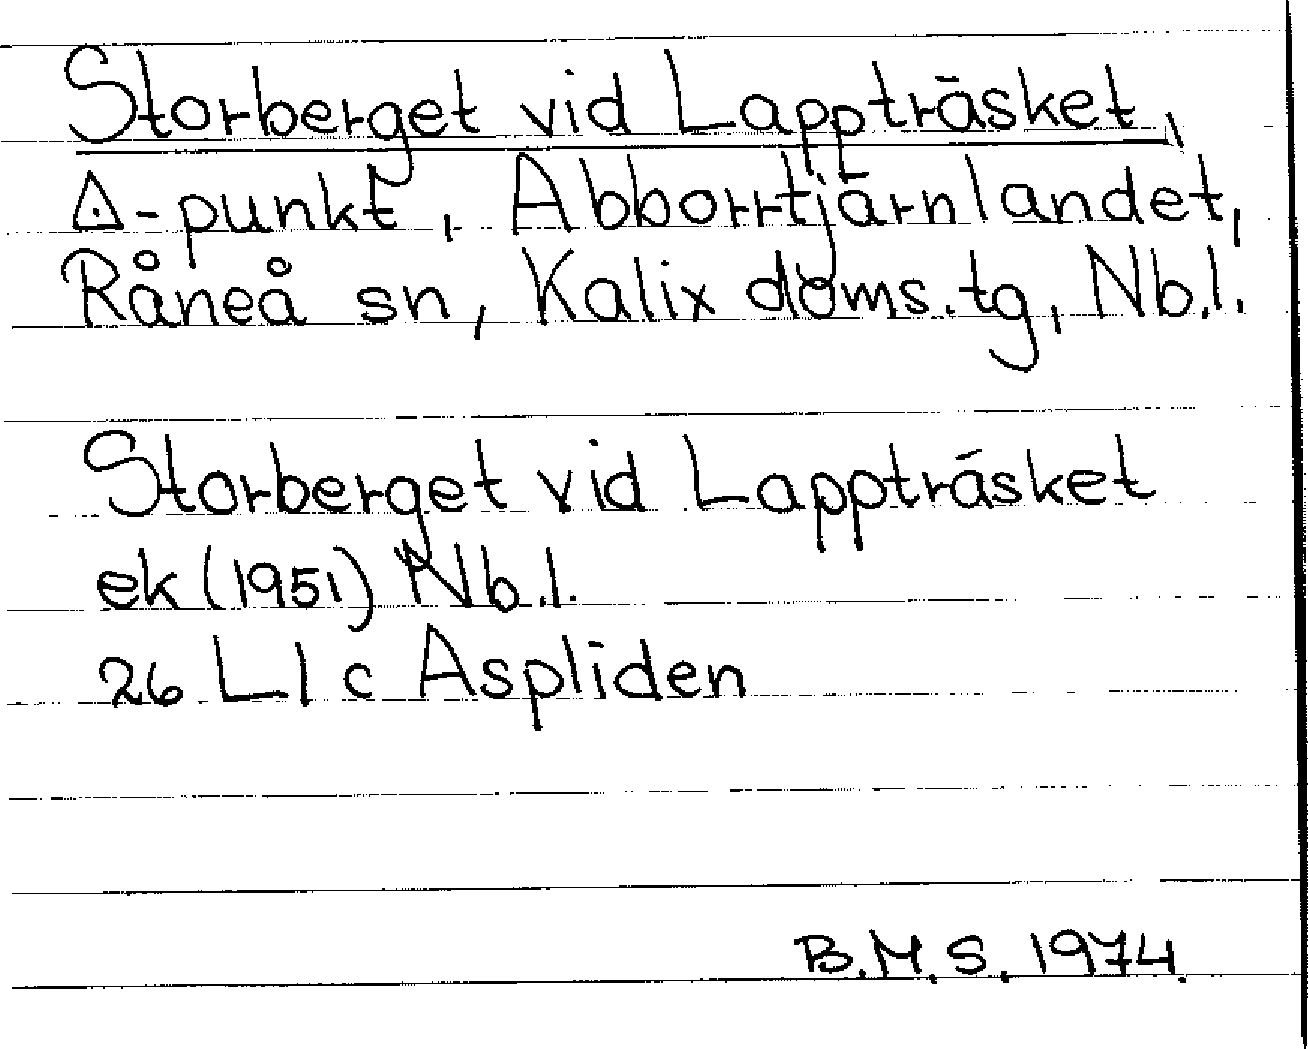 Storberget vid Lappträsket,
◬-punkt, Abborrtjärnlandet,
Råneå sn, Kalix doms.tg, Nb.l.
Storberget vid Lappträsket
ek (1951) Nb.l.
26 L1c Aspliden
B.M.S. 1974.